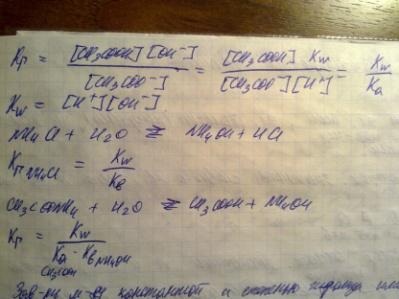 Kг = [CH₃COOH][OH⁻] / [CH₃COO⁻] = [CH₃COOH] Kw / [CH₃COO⁻][H⁺] = Kw / Ka
Kw = [H⁺][OH⁻]
NH₄Cl + H₂O ⇄ NH₄OH + HCl
Kг NH₄Cl = Kw / Kв
CH₃COONH₄ + H₂O ⇄ CH₃COOH + NH₄OH
Kг = Kw / Ka CH₃COOH · Kв NH₄OH
Зав-ть м-ду константой и степенью гидролиза